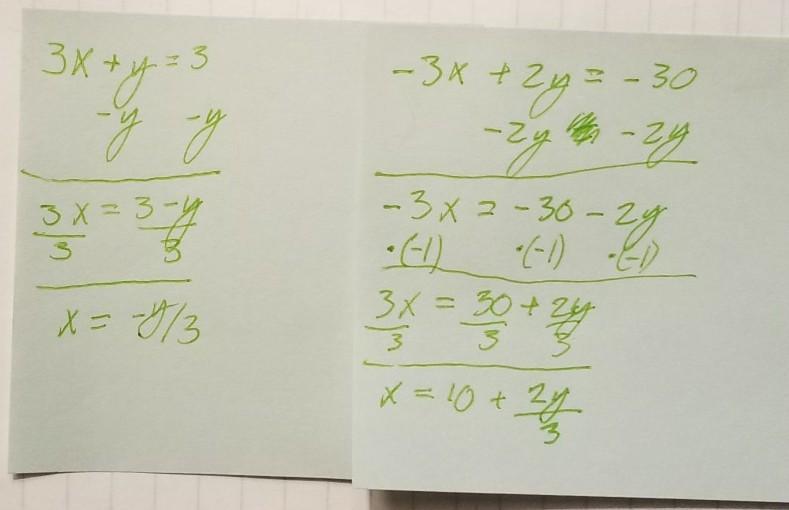 3x + y = 3
-y -y
3x = 3 - y
3 3
x = -y/3
-3x + 2y = -30
-2y -2y
-3x = -30 - 2y
·(-1) ·(-1) ·(-1)
3x = 30 + 2y
3 3 3
x = 10 + 2y
3